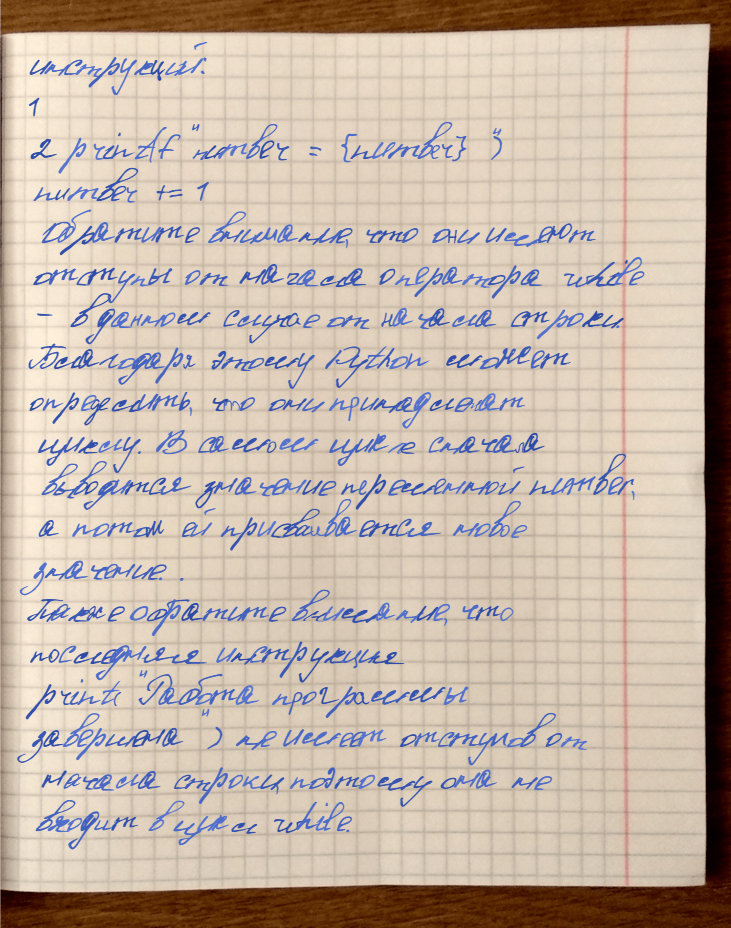 инструкций.
1
2 print(f "number = {number} ")
number += 1
Обратите внимание, что они имеют
отступы от начала оператора while
- в данном случае от начала строки.
Благодаря этому Python может
определить, что они принадлежат
циклу. В самом цикле сначала
выводится значение переменной number,
а потом ей присваивается новое
значение. .
Также обратите внимание, что
последняя инструкция
print( "Работа программы
завершена ") не имеет отступов от
начала строки, поэтому она не
входит в цикл while.